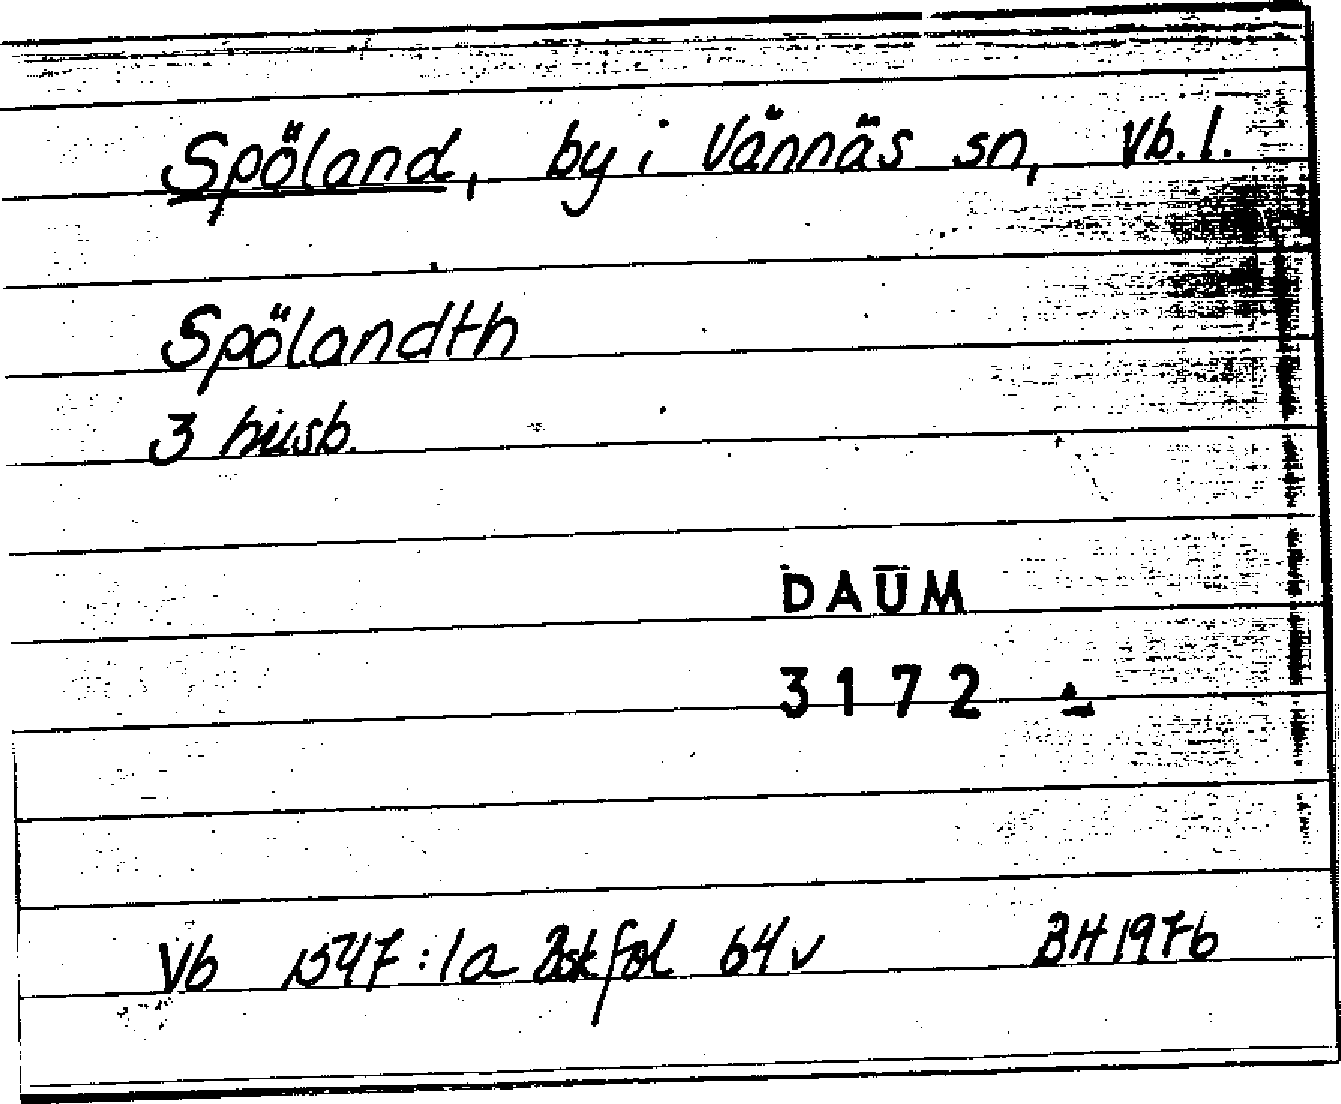 Spöland, by i Vännäs sn, Vb. l.
Spölandth
3 husb.
DAUM
3172
Vb 1547:1a Åsk fol 64 v BH 1976